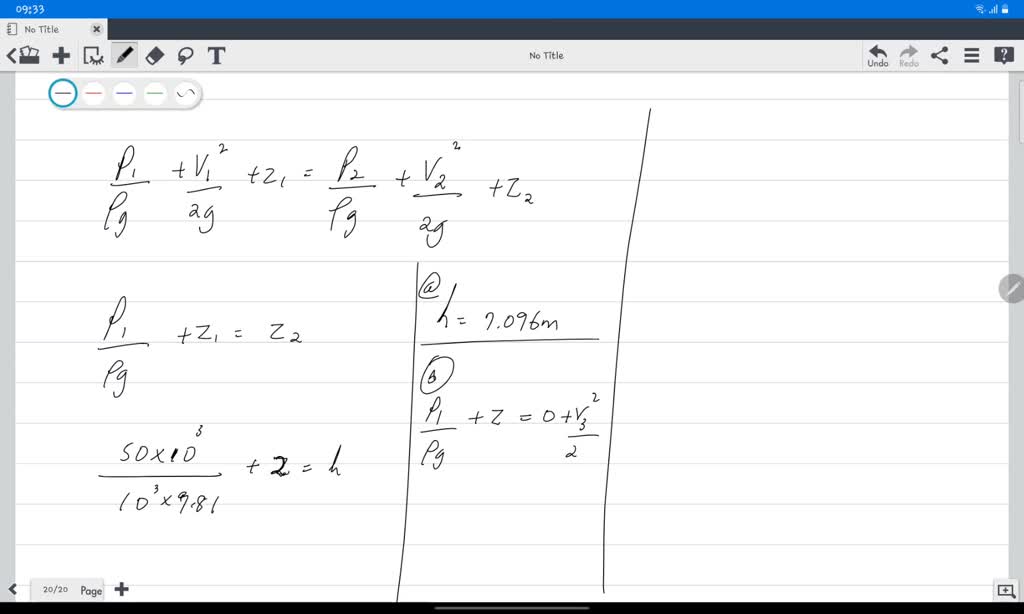 09:33
No Title
T
No Title
Undo
Redo
P₁/ρg + V₁²/2g + z₁ = P₂/ρg + V₂²/2g + z₂
P₁/ρg + z₁ = z₂
50×10³/10³×9.81 + 2 = h
@
h = 7.096m
P₁/ρg + z = 0 + V₃²/2
20/20 Page